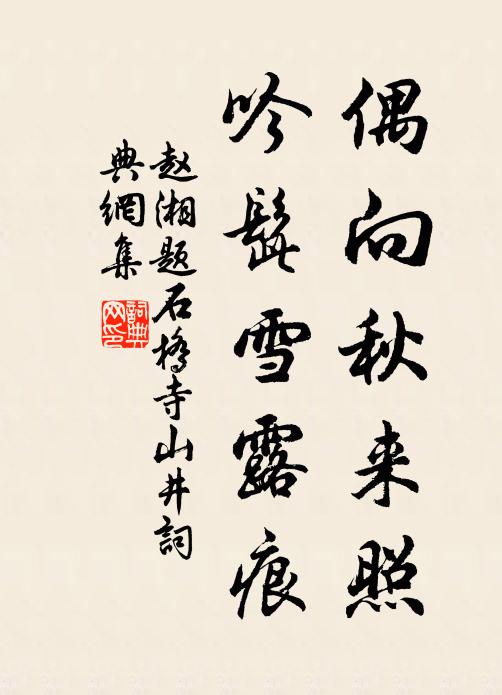 偶向秋来照
吟髭雪露痕
赵湘题石橋寺山井詞
典網集
詞典网印